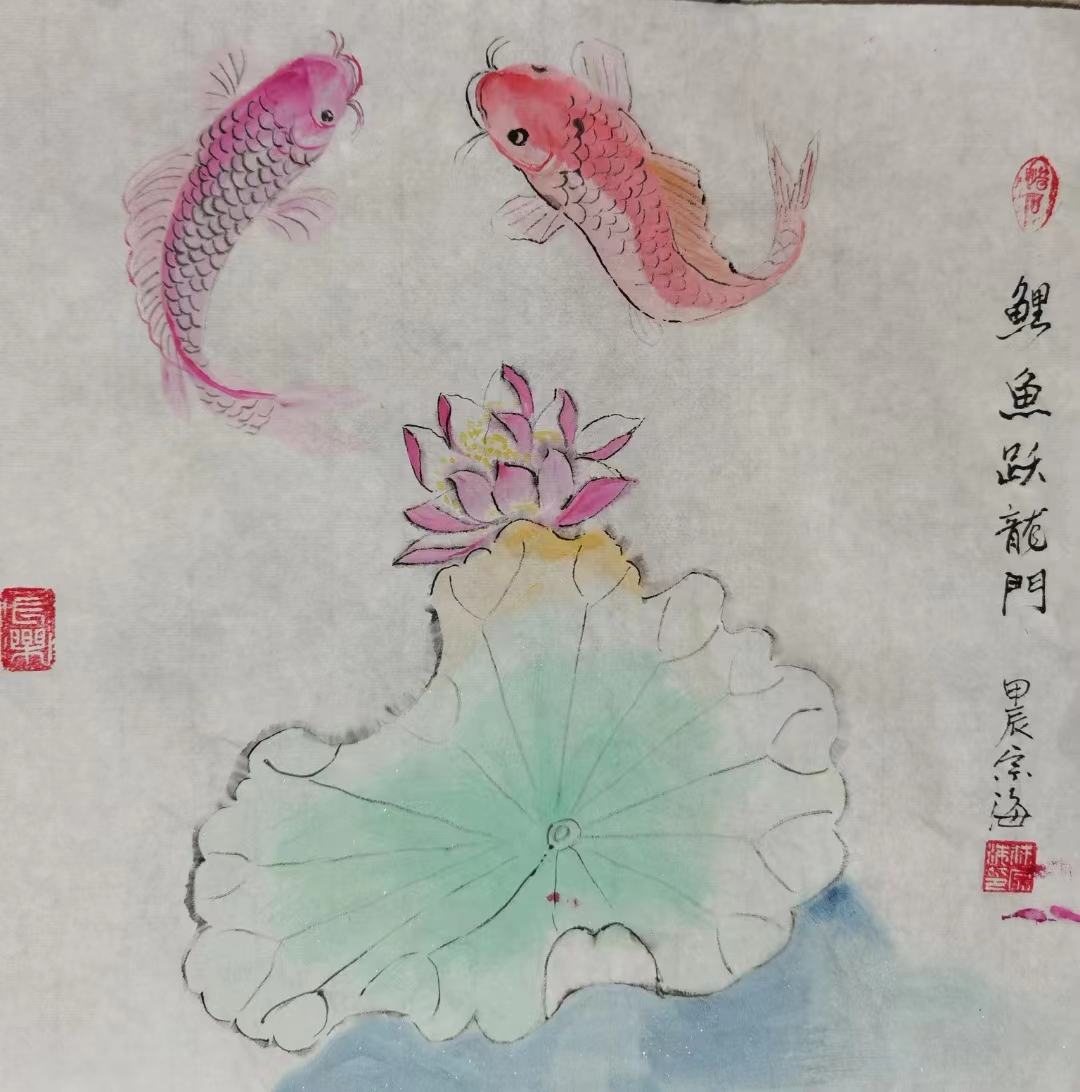 鲤鱼跃龍門
甲辰宗海
長樂